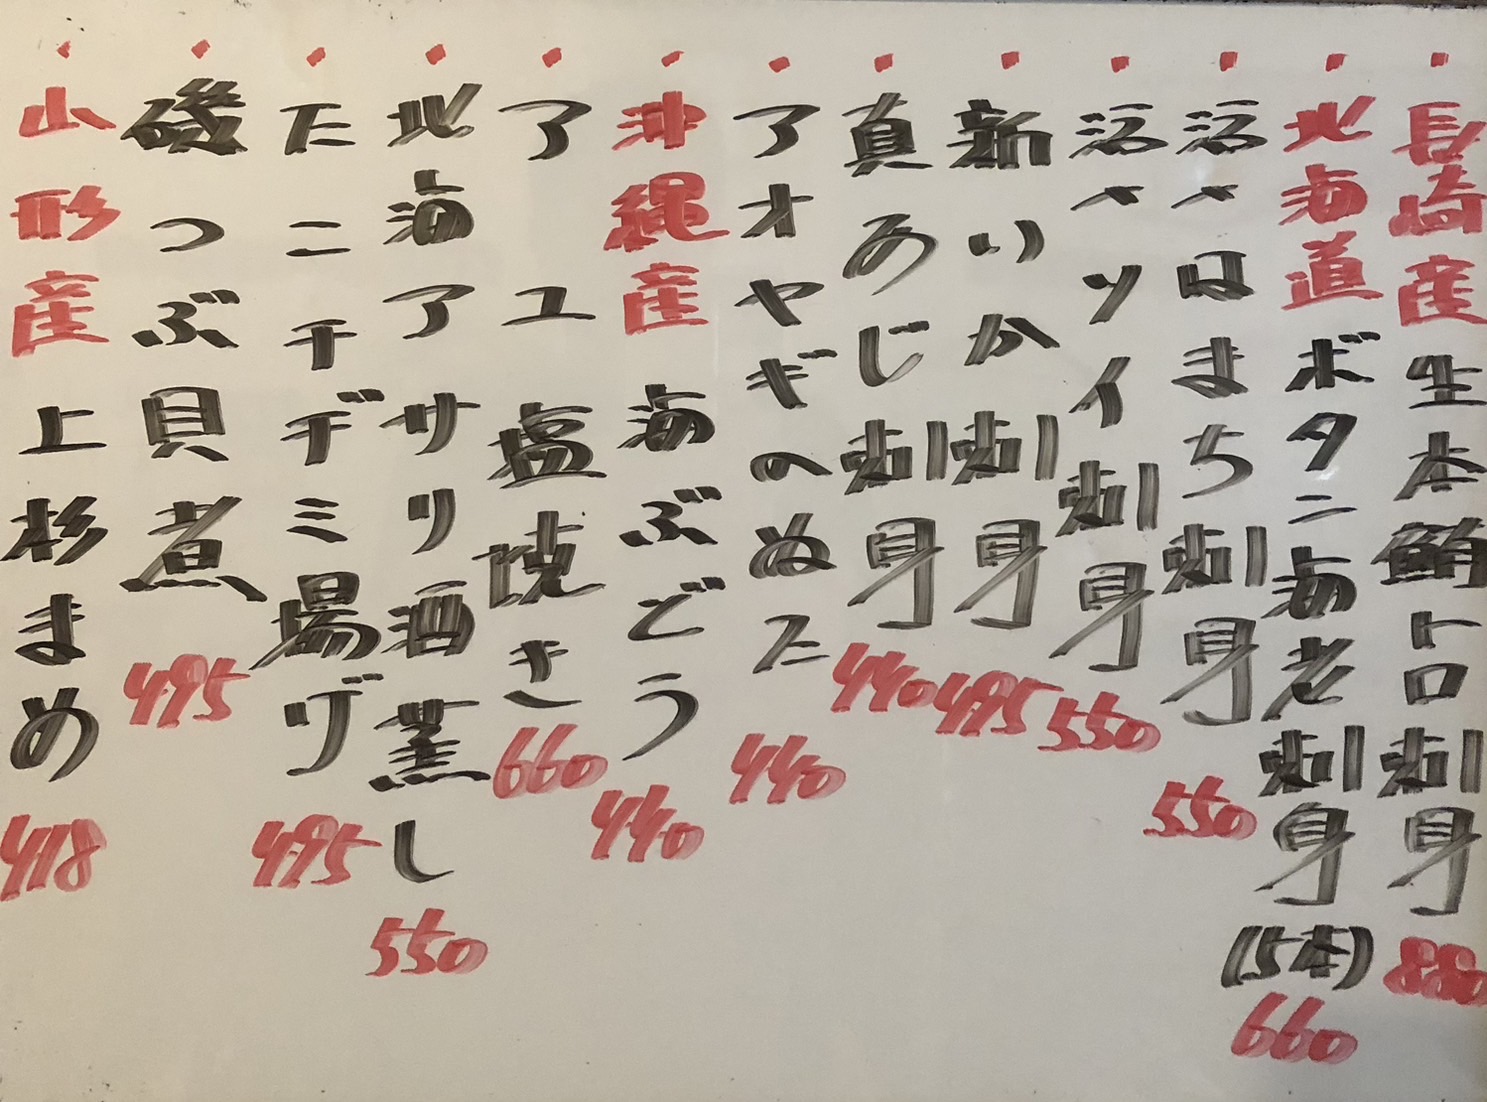 ・長崎産生本鮪トロ刺身 880
・北海道ボタン海老刺身(5本) 660
・活〆はまち刺身 550
・活〆ソイ刺身 550
・新いか刺身 495
・真あじ刺身 440
・アオヤギのぬた 440
・沖縄産海ぶどう 440
・アユ塩焼き 660
・北海アサリ酒蒸し 550
・たこチヂミ揚げ 495
・磯つぶ貝煮 495
・山形産上杉まめ 418